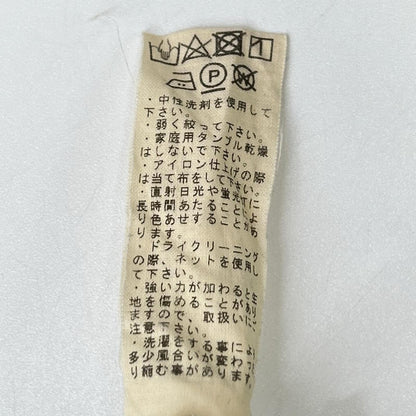 P W
・中性洗剤を使用して
下さい。
・弱く絞って下さい。
・家庭用タンブル乾燥
はしないで下さい。
・アイロン仕上げの際
は当て布をして下さい。
・直射日光や蛍光灯に
長時間あたることによ
り色あせすることがあ
ります。
・ドライクリーニング
の際、ネットを使用し
て下さい。
・強い力が加わると生
地を傷めることがあり
ますので、取扱いにご
注意下さい。
・洗濯をする事により
多少風合いが変わった
り縮む事があります